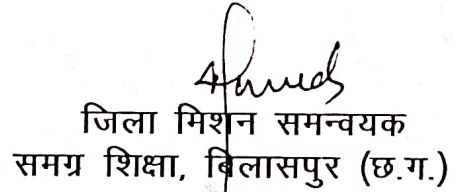 जिला मिशन समन्वयक
समग्र शिक्षा, बिलासपुर (छ.ग.)